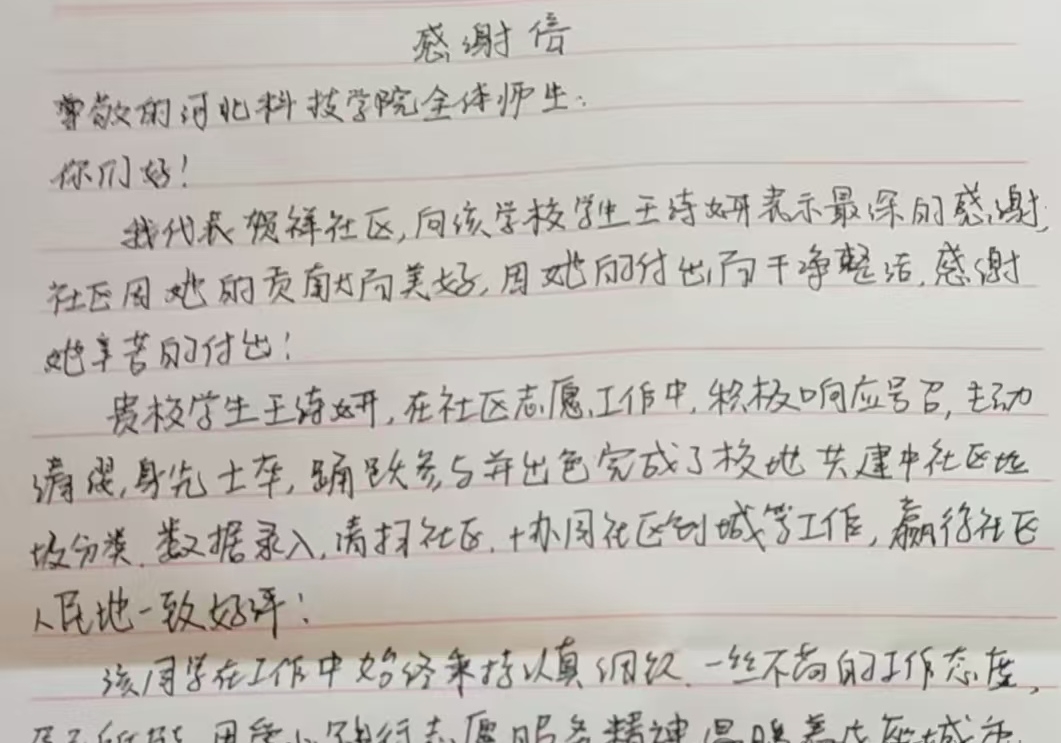 感谢信
尊敬的河北科技学院全体师生：
你们好！
我代表贺祥社区，向该学校学生王诗妍表示最深的感谢，
社区因她的贡献而美好，因她的付出而干净整洁，感谢
她辛苦的付出！
贵校学生王诗妍，在社区志愿工作中，积极响应号召，主动
请缨，身先士卒，踊跃参与并出色完成了校地共建中社区垃
圾分类、数据录入，清扫社区，协同社区创城等工作，赢得社区
人民地一致好评！
该同学在工作中始终秉持认真细致、一丝不苟的工作态度，
用 志愿服务精神温暖着